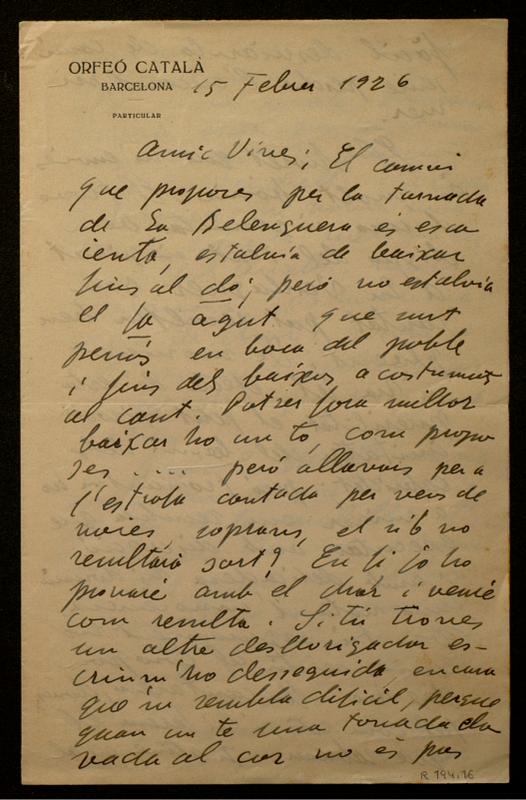 ORFEÓ CATALÀ
BARCELONA
PARTICULAR
15 Febrer 1926
Amic Vives; El camí
que proposes per la tornada
de La Balenguera és esca
ienta, estalvia de baixar
fins al do; però no estalvia
el fa agut que surt
penós en boca del poble
i fins dels baixos acostumats
al cant. Potser fora millor
baixar ho un to, com propo
ses .... però allavors per a
l'estrofa cantada per veus de
noies, soprans, el si b no
resultarà sort? En fi jo ho
provaré amb el chor i veuré
com resulta. Si tú troves
un altre desllorigador es-
criu-m'ho desseguida, encara
que 'm sembla difícil, perque
quan un te una tonada cla
vada al cor no és pas
R 194.16